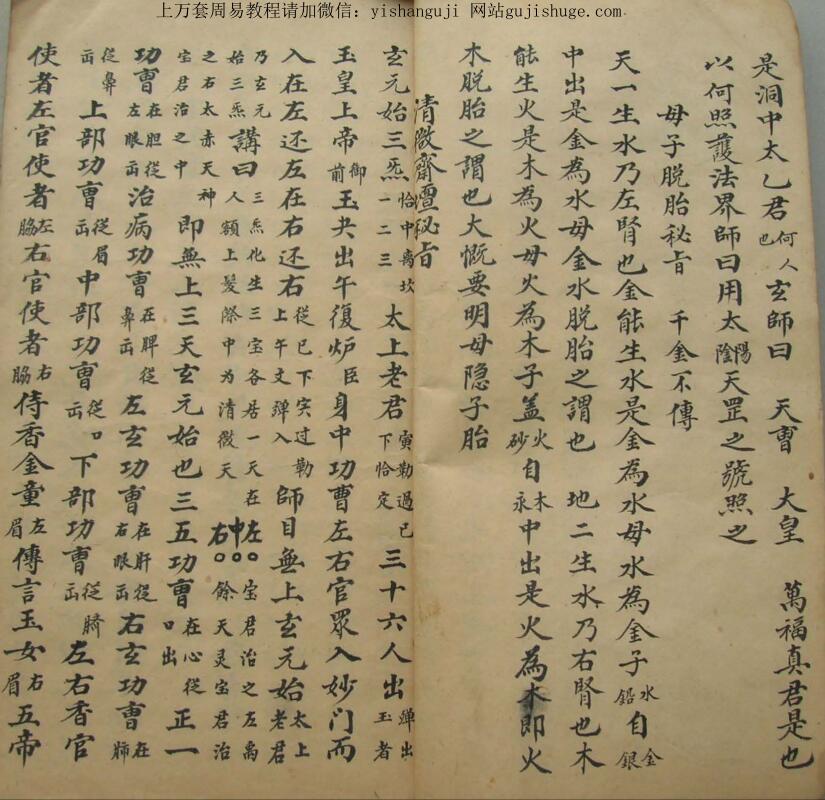 上万套周易教程请加微信：yishanguji 网站gujishuge.com
是洞中太乙君何人也玄師曰　天曹　大皇　萬福真君是也
以何照護法界師曰用太陽陰天罡之號照之
母子脱胎秘旨　千金不傳
天一生水乃左腎也金能生水是金為水母水為金子水鉛自金銀
中出是金為水母金水脱胎之謂也　地二生水乃右腎也木
能生火是木為火母火為木子盖火砂自木永中出是火為木即火
木脱胎之謂也大慨要明母隐子胎
清微齋壇秘旨
玄元始三炁恰中离坎一二三太上老君寅勒過巳下恰定三十六人出殫出玉者
玉皇上帝御前玉炁出午復炉臣身中功曹左右官眾入妙门而
入在左还左在右还右從巳下实过勒上午文殫入師目無上玄元始太上老君
乃玄元始三炁講曰三炁化生三宝各居一天在人额上髮際中为清微天左○中○右○宝君治之左禹餘天灵宝君治
之右太赤天神宝君治之中即無上三天玄元始也三五功曹在心從口出正一
功曹在胆從左眼出治病功曹在脾從鼻出左玄功曹在肝從右眼出右玄功曹在肺
從鼻出上部功曹從眉出中部功曹從口出下部功曹從臍出左右香官
使者左官使者左脇右官使者右脇侍香金童左眉傳言玉女右眉五帝